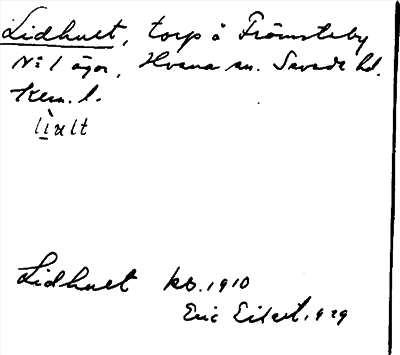 Lidhult, torp å Frömsteby
No 1 ägor, Hvena sn. Sevede hd.
Kalm. l.
Lidhult kb. 1910
Eric Eilert. 1929